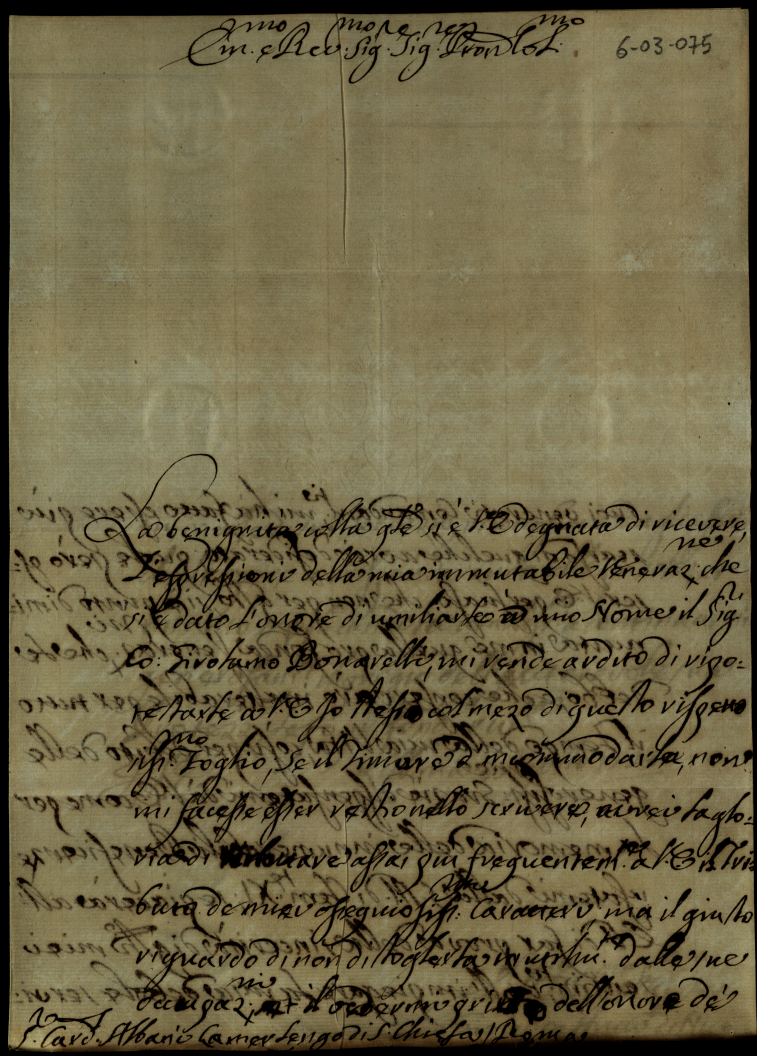 Em.mo e Rev.mo Sig.re Sig.re Pron Col.mo
6-03-075
La benignità colla q.le si è V.E. degnata di ricevere,
l'espressioni della mia immutabile veneraz.ne che
si è dato l'onore di umiliarle a mio Nome il Sig.r
Co: Girolamo Bonarelli, mi rende ardito di ripo=
testarle a V.E. Io stesso col mezo di questo rispetto
sis.mo Foglio, se il timore d'incommodarla, non
mi facesse esser restio nello scrivere, averei la glo=
ria di tributare assai più frequentem.te a V.E. il tri=
buto de miei ossequiosiss.mi Caratteri, ma il giusto
riguardo di non distoglierla dalle sue
et il vedermi privo dell'onore de
S. Card. Albani Camerlengo di S. Chiesa / Roma